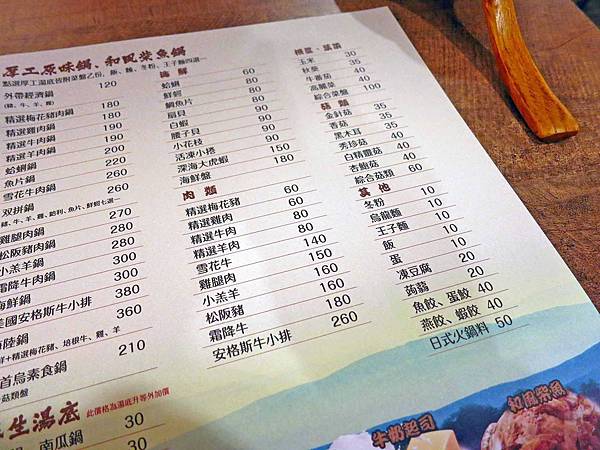 厚工原味鍋、和風柴魚鍋
點選厚工湯底皆附菜盤乙份，飯、麵、冬粉、王子麵四選一
外帶經濟鍋 120
(豬、牛、羊、雞)
精選梅花豬肉鍋 180
精選雞肉鍋 180
精選牛肉鍋 190
精選羊肉鍋 190
蛤蜊鍋 200
魚片鍋 220
雪花牛肉鍋 260
双拼鍋 260
豬、牛、羊、雞、蛤蜊、魚片、鮮蚵七選一
雞腿肉鍋 270
松阪豬肉鍋 280
小羔羊鍋 280
霜降牛肉鍋 300
海鮮鍋 300
美國安格斯牛小排 380
海陸鍋 360
海鮮+精選梅花豬、培根牛、雞、羊
首烏素食鍋 210
菇類盤
養生湯底 此價格為湯底升等外加價
30
南瓜鍋 30
海鮮
蛤蜊 60
鮮蚵 60
鯛魚片 80
扇貝 90
白蝦 90
腰子貝 90
小花枝 90
活凍小塔 90
深海大虎蝦 150
海鮮盤 180
肉類
精選梅花豬 60
精選雞肉 60
精選牛肉 80
精選羊肉 80
雪花牛 140
雞腿肉 150
小羔羊 160
松阪豬 160
霜降牛 180
安格斯牛小排 260
根莖、葉類
玉米 30
秋葵 35
牛番茄 40
高麗菜 40
綜合菜盤 100
菇類
金針菇 35
香菇 35
黑木耳 35
秀珍菇 40
白精靈菇 40
杏鮑菇 40
綜合菇類 60
其他
冬粉 10
烏龍麵 10
王子麵 10
飯 10
蛋 10
凍豆腐 20
蒟蒻 20
魚餃、蛋餃 40
燕餃、蝦餃 40
日式火鍋料 50
牛奶起司
和風柴魚